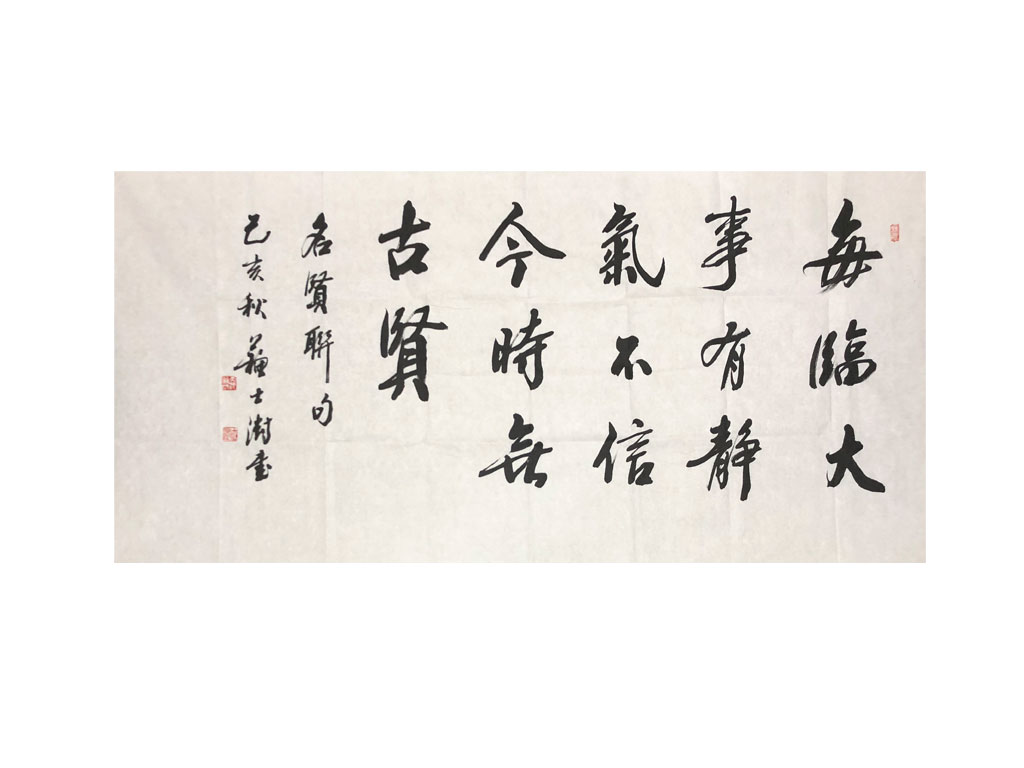 每臨大
事有静
氣不信
今時無
古賢
名賢聯句
己亥秋蘇士澍書